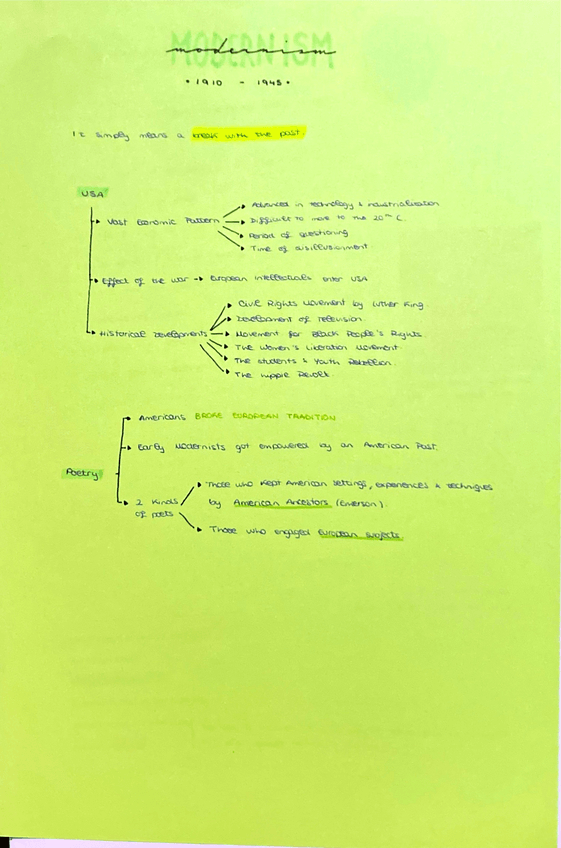 MODERNISM
modernism
• 1910 - 1945 •
It simply means a break with the past.
USA
Vast Economic Pattern
Advanced in technology & industrialization
Difficult to move to the 20th C.
Period of questioning
Time of disillusionment
Effect of the war → European intellectuals enter USA
Historical Developments
Civil Rights Movement by Luther King.
Development of television.
Movement for Black People's Rights.
The Women's Liberation Movement.
The students & Youth Rebellion.
The Hippie Revolt.
Poetry
Americans BROKE EUROPEAN TRADITION
Early Modernists got empowered by an American Past.
2 kinds of poets
Those who kept American settings, experiences & techniques
by American Ancestors (Emerson).
Those who engaged European subjects.